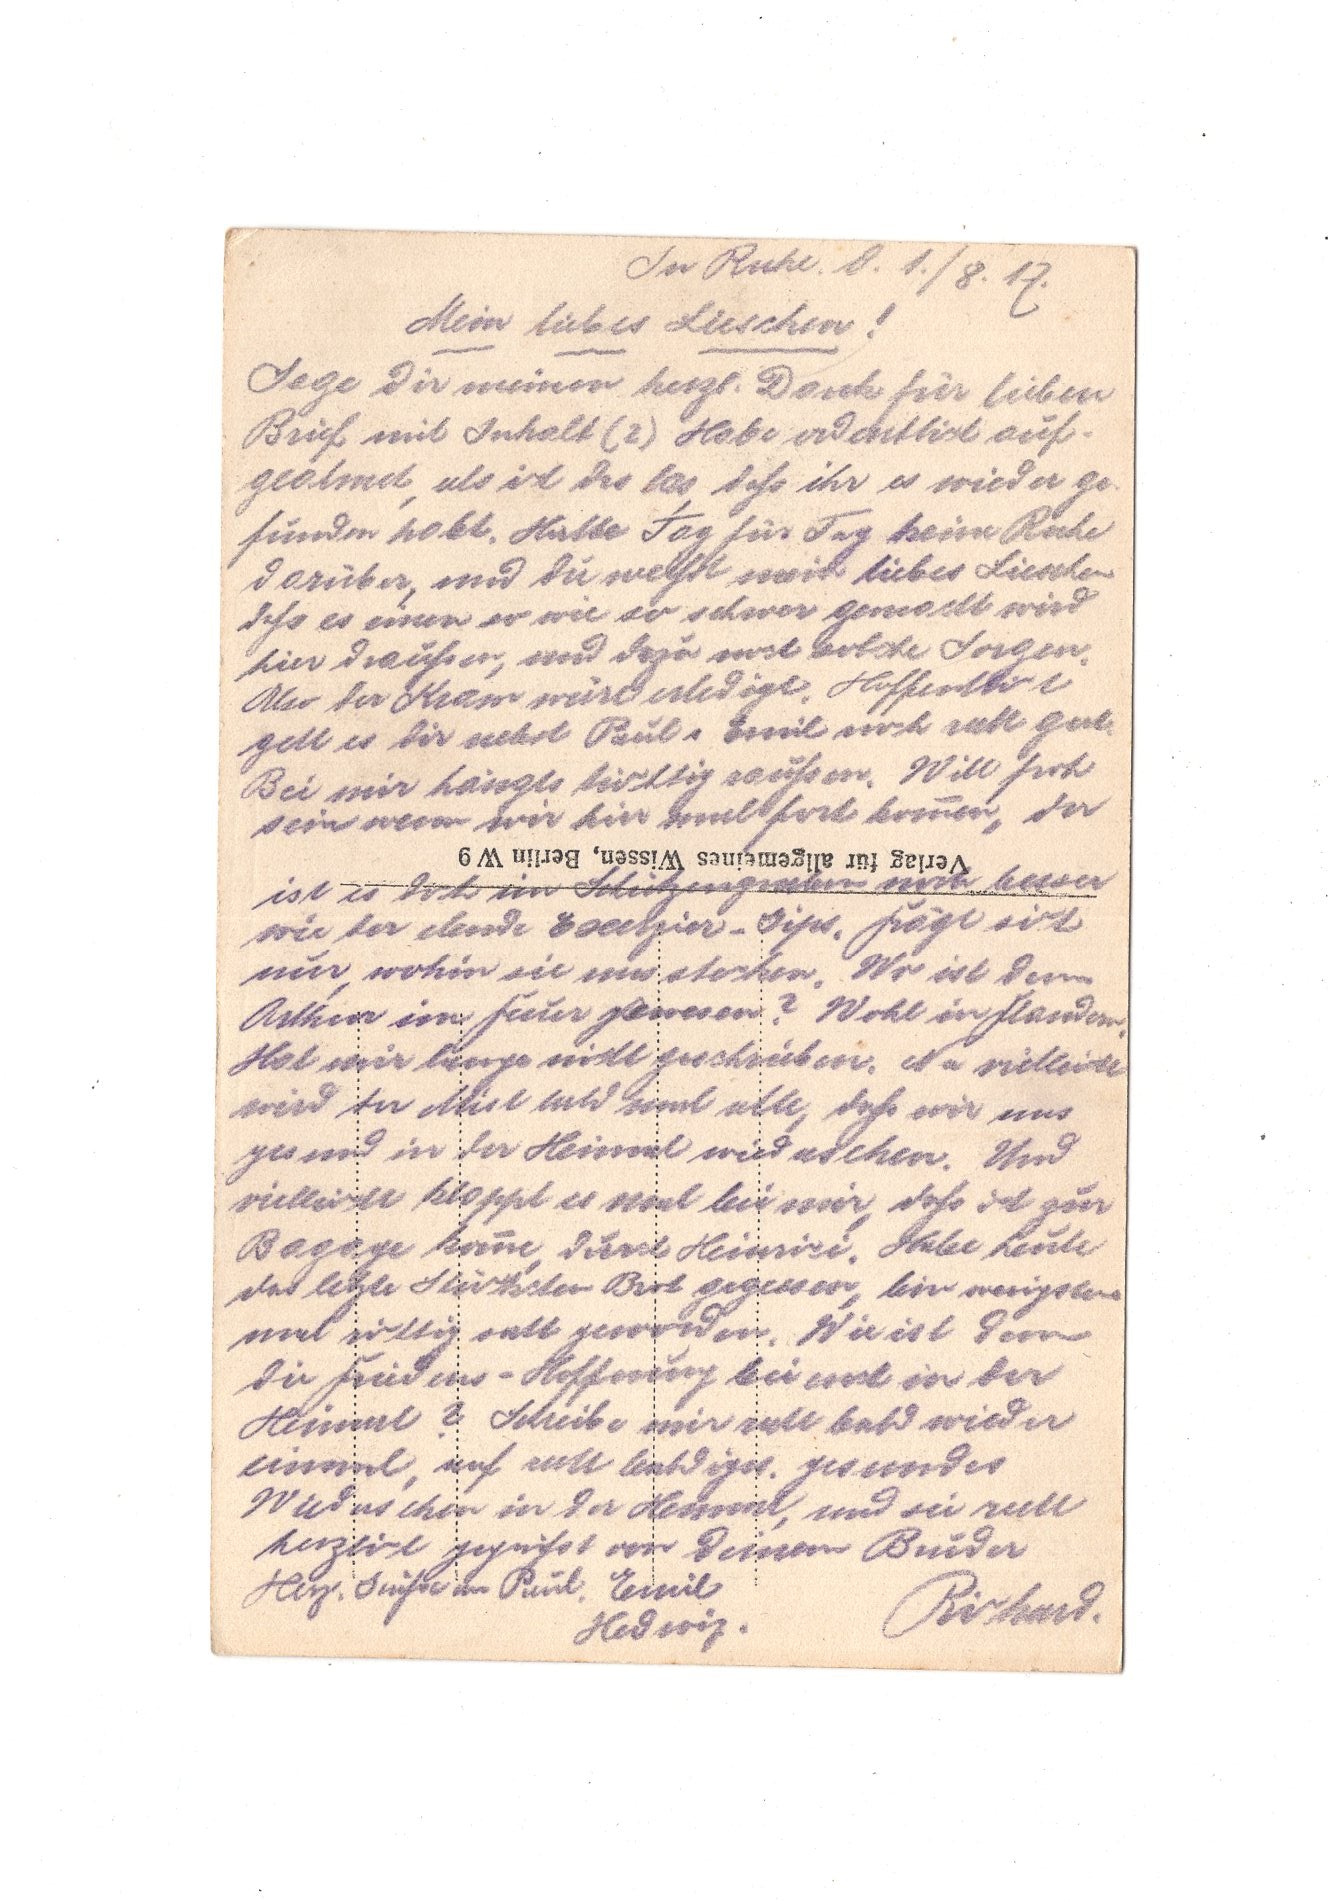 In Ruhe. d. 1./8. 17.
Mein liebes Lieschen!
Sage dir meinen herzl. Dank für lieben
Brief mit Inhalt (2) Habe ordentlich auf-
geatmet, als ich das las, dass ihr es wieder ge-
funden habt. Hatte Tag für Tag keine Ruhe
darüber, und du weißt mein liebes Lieschen
dass es einen so wie so schwer gemacht wird
hier draußen, und dazu noch solche Sorgen.
Also der Kram wäre erledigt. Hoffentlich
geht es dir nebst Paul u Emil noch recht gut.
Bei mir hängts tüchtig raußen. Will froh
sein wenn wir hier mal fort kommen, da
Verlag für allgemeines Wissen, Berlin W 9
ist es doch im Schützengraben noch besser
wie der elende Exerzier-Gips. frägt sich
nur, wohin sie uns stecken. Wo ist denn
Arthur im Feuer gewesen? Wohl in Flandern.
Hat mir lange nicht geschrieben. Na vielleicht
wird der Mist bald mal alle, dass wir uns
gesund in der Heimat wiedersehen. Und
vielleicht kloppt es mal bei mir, dass ich zur
Bagage komme, durch Heinrici. Habe heute
das letzte Stückchen Brot gegessen, bin wenigstens
mal richtig satt geworden. Wie ist denn
die Friedens-Hoffnung bei euch in der
Heimat? Schreibe mir recht bald wieder
einmal, auf recht baldiges. gesundes
Wiedersehen in der Heimat, und sei recht
herzlich gegrüßt von deinem Bruder
Herz. Grüße an Paul. Emil
Hedwig. Richard.